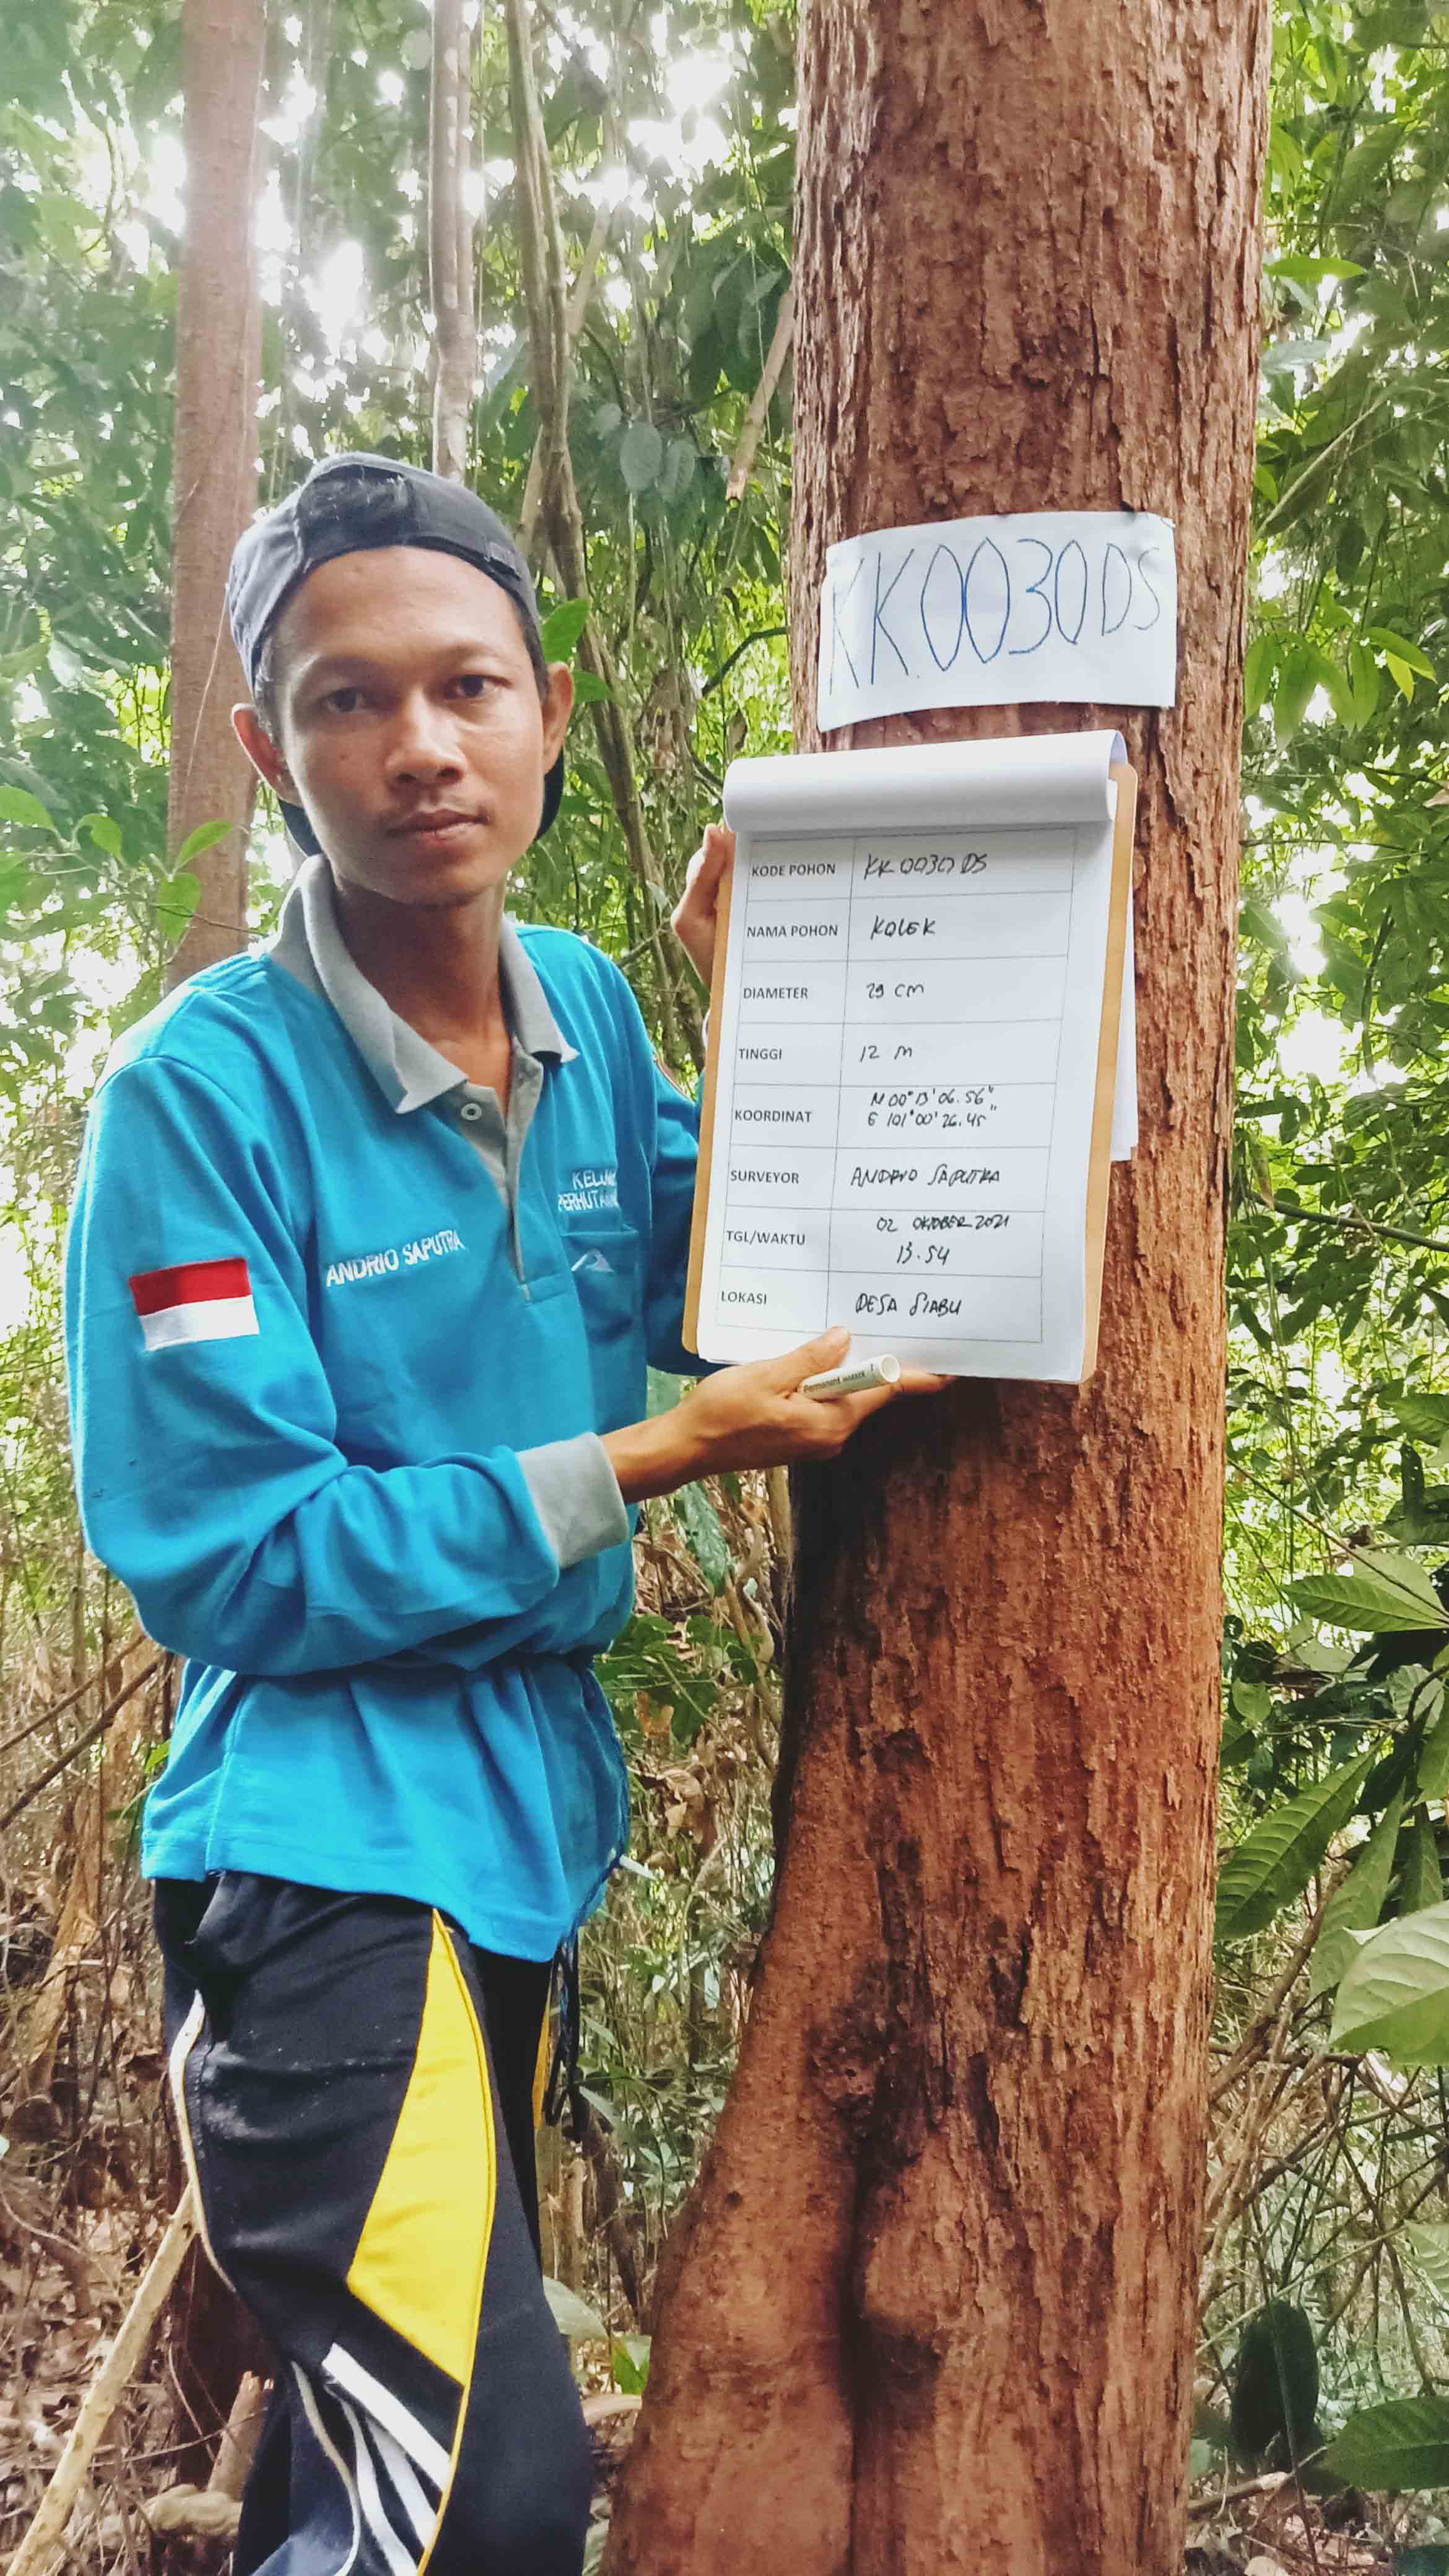 KK0030DS
KODE POHON KK 0030 DS
NAMA POHON KOLEK
DIAMETER 29 CM
TINGGI 12 M
KOORDINAT N 00° 13' 06.56"
E 101° 00' 26.45"
SURVEYOR ANDRIO SAPUTRA
TGL/WAKTU 02 OKTOBER 2021
13.54
LOKASI DESA SIABU
ANDRIO SAPUTRA
Permanent MARKER